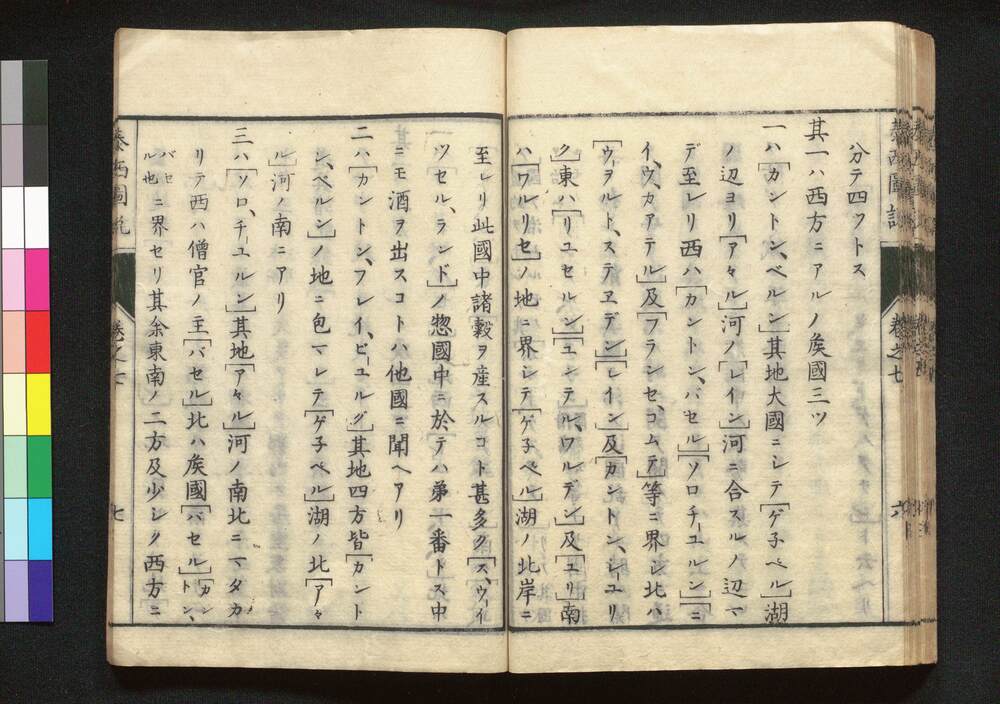 泰西圖説
卷之七
六
分テ四ツトス
其一ハ西方ニアルノ矦國三ツ
一ハ「カントン、ベルン」其地大國ニシテ「ゲ子ベル」湖
ノ辺ヨリ「アヽル」河ノ「レイン」河ニ合スルノ辺マ
デ至レリ西ハ「カントン、バセル」「ソロチユルン」「ニ
イ、ウ、カアテル」及「フランセ、コムテ」等ニ界シ北ハ
「ウヲルト、ステヱデン」「レイン」及「カントン、シユリ
ク」東ハ「リユセルン」「ユンテル、ワルデン」及「ユリ」南
ハ「ワルリセ」ノ地ニ界シテ「ゲ子ベル」湖ノ北岸ニ
至レリ此國中諸穀ヲ産スルコト甚多ク「ス、ウイ
ツセル、ランド」ノ惣國中ニ於テハ第一番トス中
ニモ酒ヲ出スコトハ他國ニ聞ヘアリ
二ハ「カントン、フレイ、ビユルグ」其地四方皆「カント
ン、ベルン」ノ地ニ包マレテ「ゲ子ベル」湖ノ北「アヽ
ル」河ノ南ニアリ
三ハ「ソロ、チユルン」其地「アヽル」河ノ南北ニマタカ
リテ西ハ僧官ノ主「バセル」北ハ矦國「バセル」「カントン、
バセル也」ニ界セリ其余東南ノ二方及少シク西方ニ
泰西圖説
卷之七
七